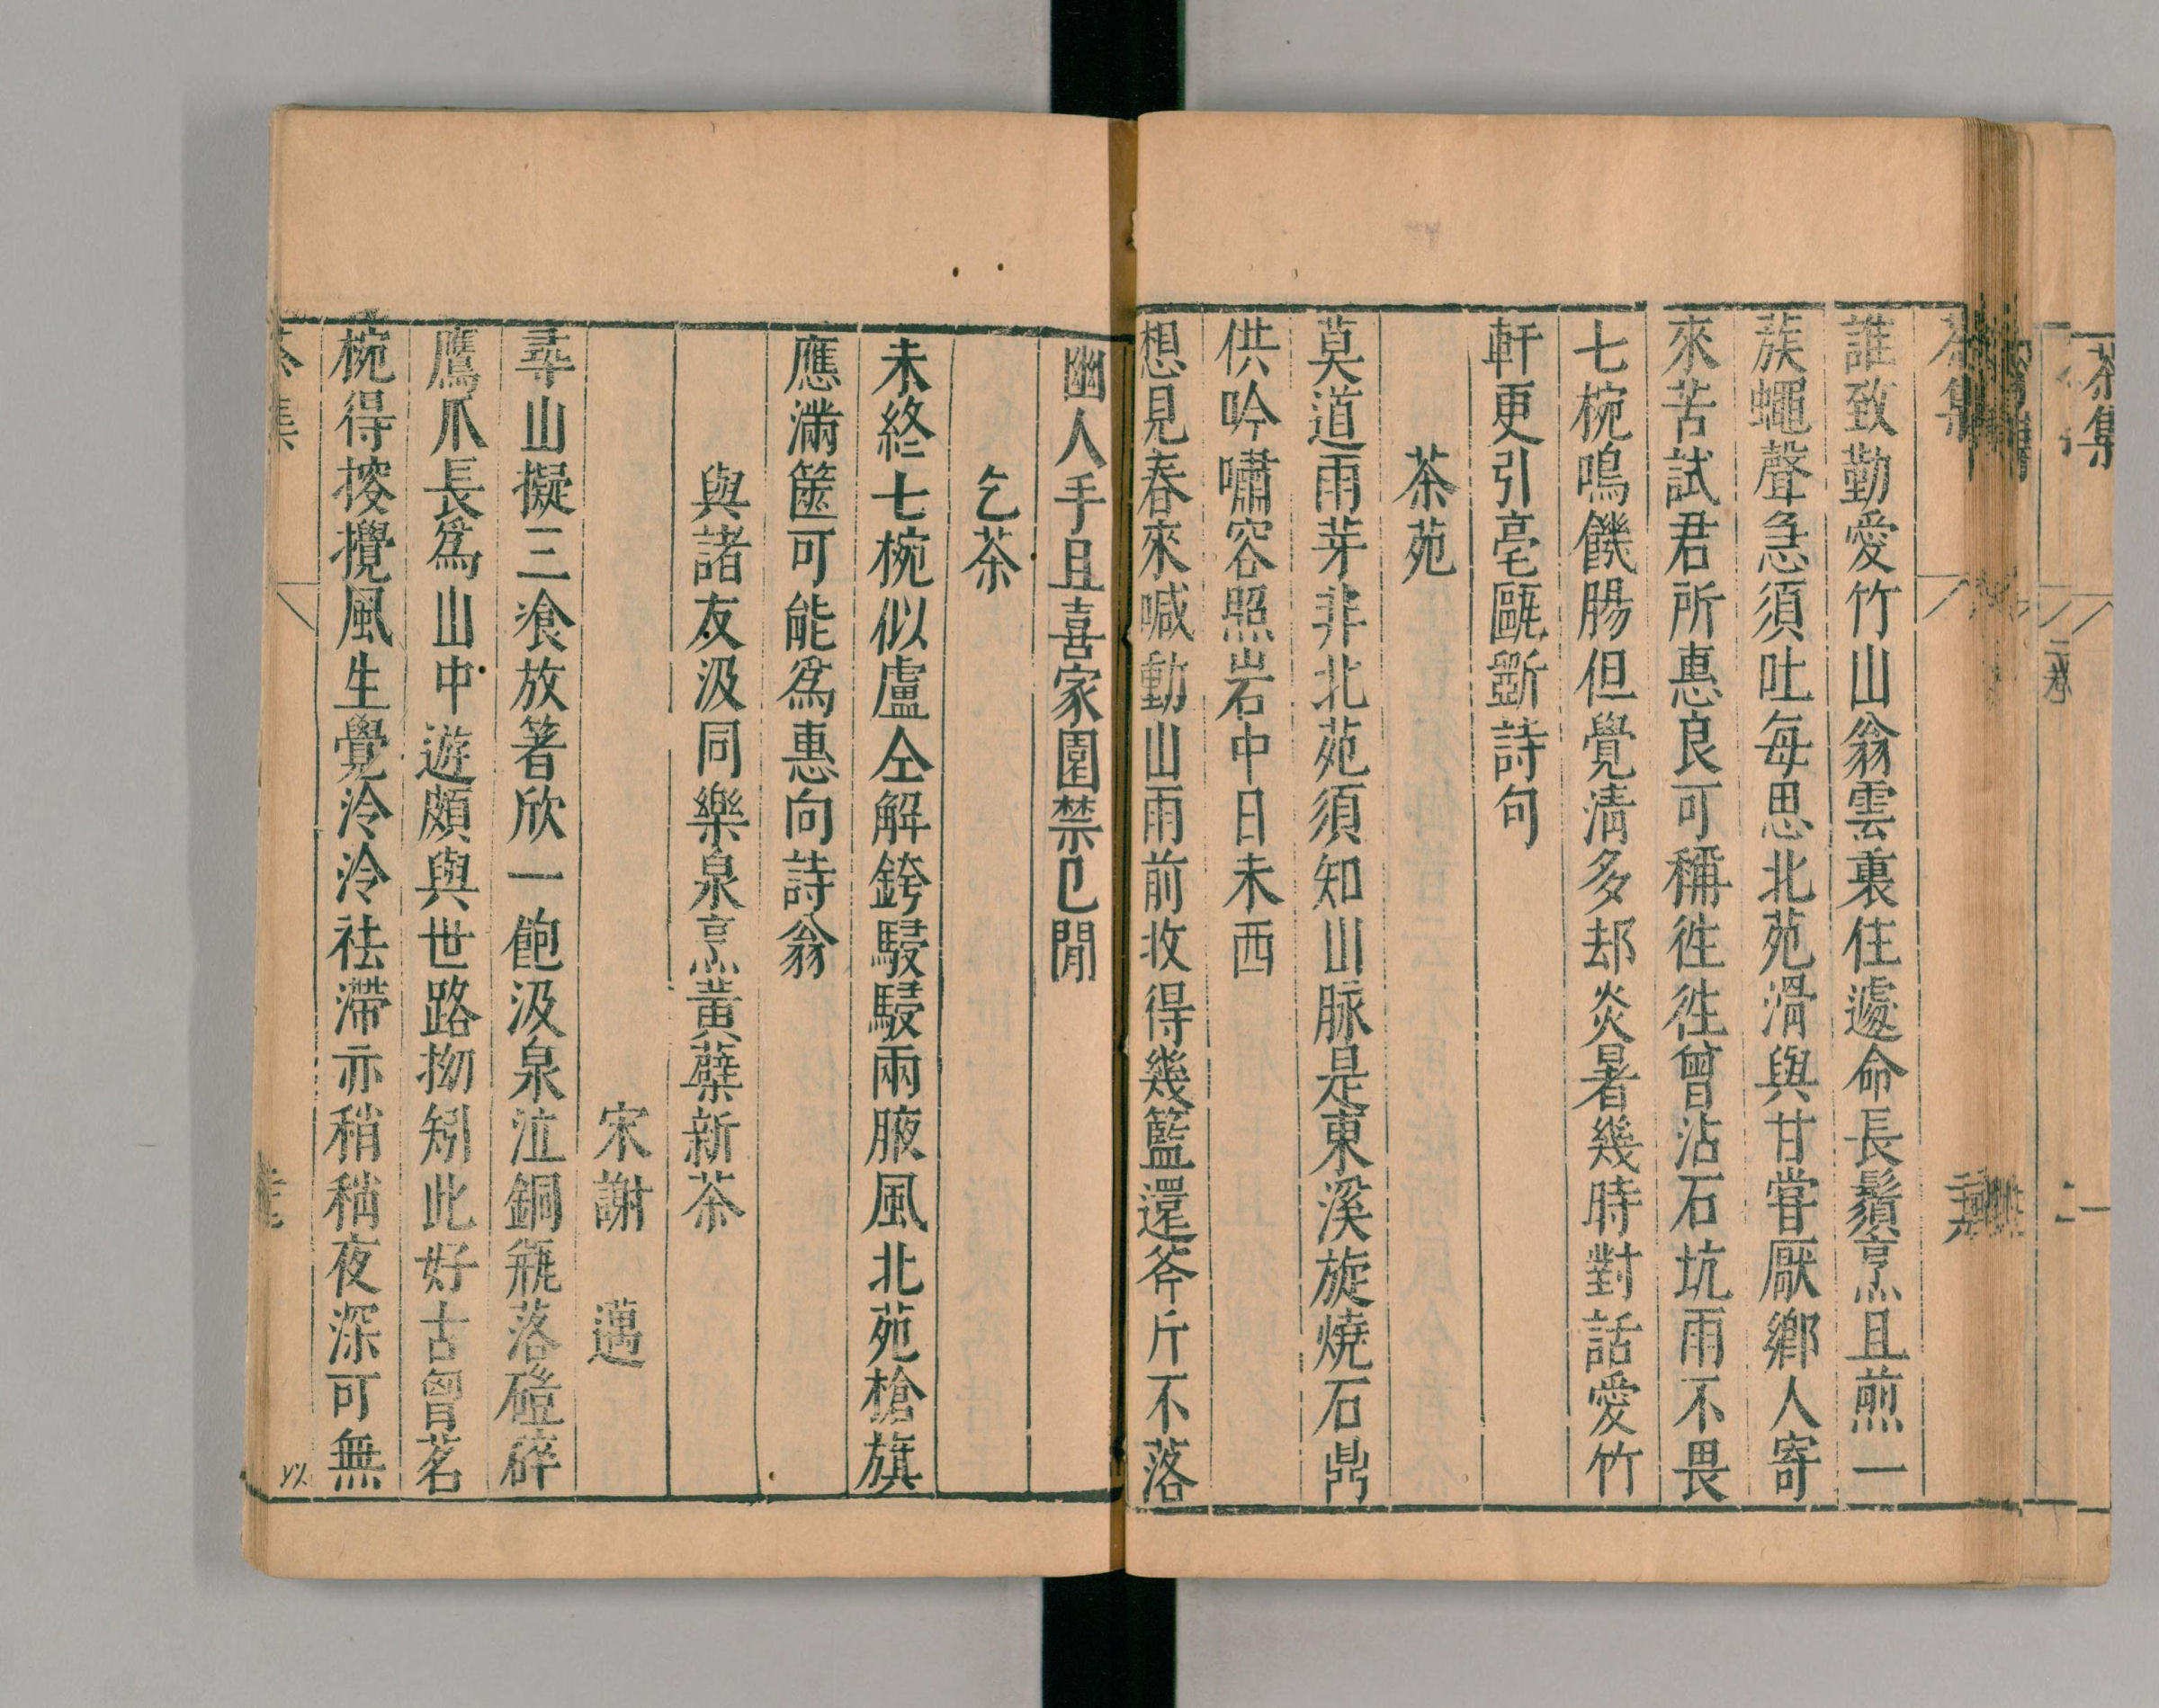 茶集
二卷
二
茶集
誰致勤愛竹山翁雲裏住遽命長鬚烹且煎一
蔟蠅聲急須吐每思北苑滑與甘嘗厭鄉人寄
來苦試君所惠良可稱徃徃曾沾石坑雨不畏
七椀鳴饑腸但覺清多却炎暑幾時對話愛竹
軒更引毫甌斵詩句
茶苑
莫道雨芽非北苑須知山脉是東溪旋燒石鼎
供吟嘯容照岩中日未西
想見春來喊動山雨前收得幾籃還斧斤不落
幽人手且喜家園禁已閒
乞茶
未終七椀似盧仝解銙駸駸兩腋風北苑槍旗
應滿篋可能爲惠向詩翁
與諸友汲同樂泉烹黃蘗新茶
宋謝邁
尋山擬三飡放箸欣一飽汲泉泣銅瓶落磑碎
鷹爪長爲山中遊頗與世路拗矧此好古胷茗
椀得搜攪風生覺泠泠祛滯亦稍稍夜深可無
茶集